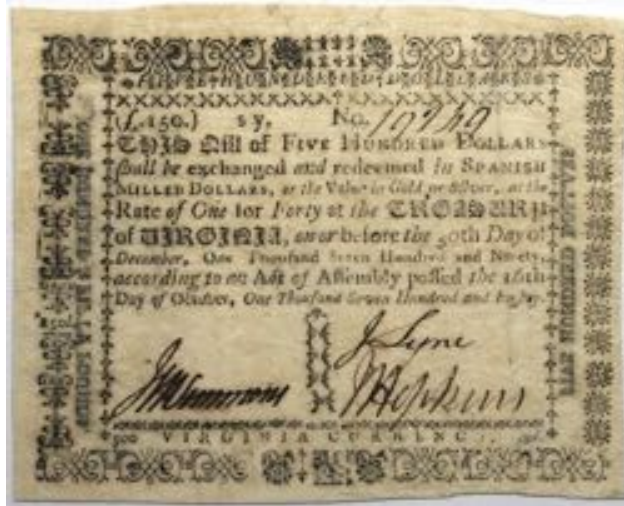 FIVE HUNDRED DOLLARS
(£.150.) s y, No.
THIS Bill of FIVE HUNDRED DOLLARS
shall be exchanged and redeemed in SPANISH
MILLED DOLLARS, or the Value in Gold or Silver, at the
Rate of One for Forty at the TREASURY
of VIRGINIA, on or before the 30th Day of
December, One Thousand Seven Hundred and Ninety,
according to an Act of Assembly passed the 16th
Day of October, One Thousand Seven Hundred and Eighty.
J Lyne
J Hopkins
500 VIRGINIA CURRENCY.
FIVE HUNDRED DOLLARS